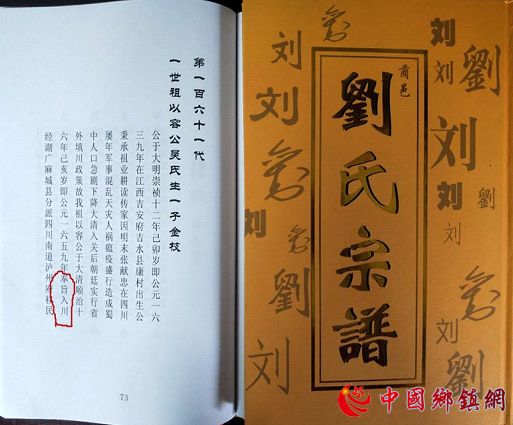 第一百六十一代
一世祖以容公吴氏生一子金枝
公于大明崇祯十二年己卯岁即公元一六
三九年在江西吉安府吉水县康村出生公
秉承祖业耕读传家因明末张献忠在四川
屡年军事混乱天灾人祸瘟疫盛行造成蜀
中人口急剧下降大清入关后朝廷实行省
外填川政策故我祖以容公于大清顺治十
六年己亥岁即公元一六五九年奉旨入川
经湖广麻城县分派四川南道泸州府移民
73
莆邑
劉氏宗譜
刘
劉
刘
刘
刘
劉
刘
刘
劉
刘
劉
刘
劉
中國鄉鎮網